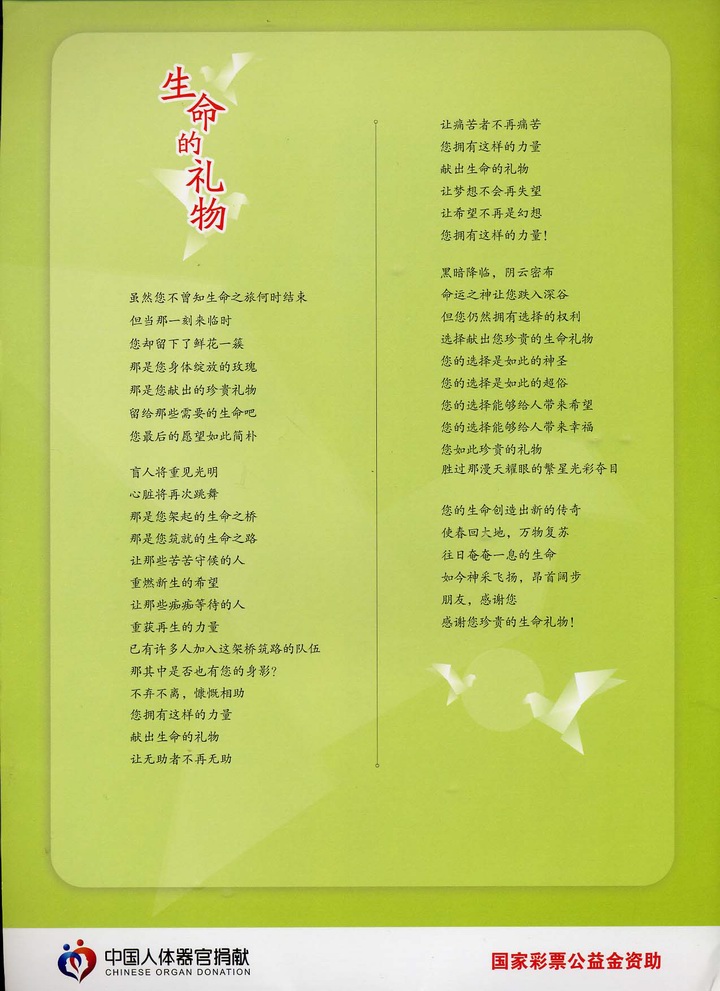 生命的礼物
虽然您不曾知生命之旅何时结束
但当那一刻来临时
您却留下了鲜花一簇
那是您身体绽放的玫瑰
那是您献出的珍贵礼物
留给那些需要的生命吧
您最后的愿望如此简朴
盲人将重见光明
心脏将再次跳舞
那是您架起的生命之桥
那是您筑就的生命之路
让那些苦苦守候的人
重燃新生的希望
让那些痴痴等待的人
重获再生的力量
已有许多人加入这架桥筑路的队伍
那其中是否也有您的身影？
不弃不离，慷慨相助
您拥有这样的力量
献出生命的礼物
让无助者不再无助
让痛苦者不再痛苦
您拥有这样的力量
献出生命的礼物
让梦想不会再失望
让希望不再是幻想
您拥有这样的力量！
黑暗降临，阴云密布
命运之神让您跌入深谷
但您仍然拥有选择的权利
选择献出您珍贵的生命礼物
您的选择是如此的神圣
您的选择是如此的超俗
您的选择能够给人带来希望
您的选择能够给人带来幸福
您如此珍贵的礼物
胜过那漫天耀眼的繁星光彩夺目
您的生命创造出新的传奇
使春回大地，万物复苏
往日奄奄一息的生命
如今神采飞扬，昂首阔步
朋友，感谢您
感谢您珍贵的生命礼物！
中国人体器官捐献
CHINESE ORGAN DONATION
国家彩票公益金资助